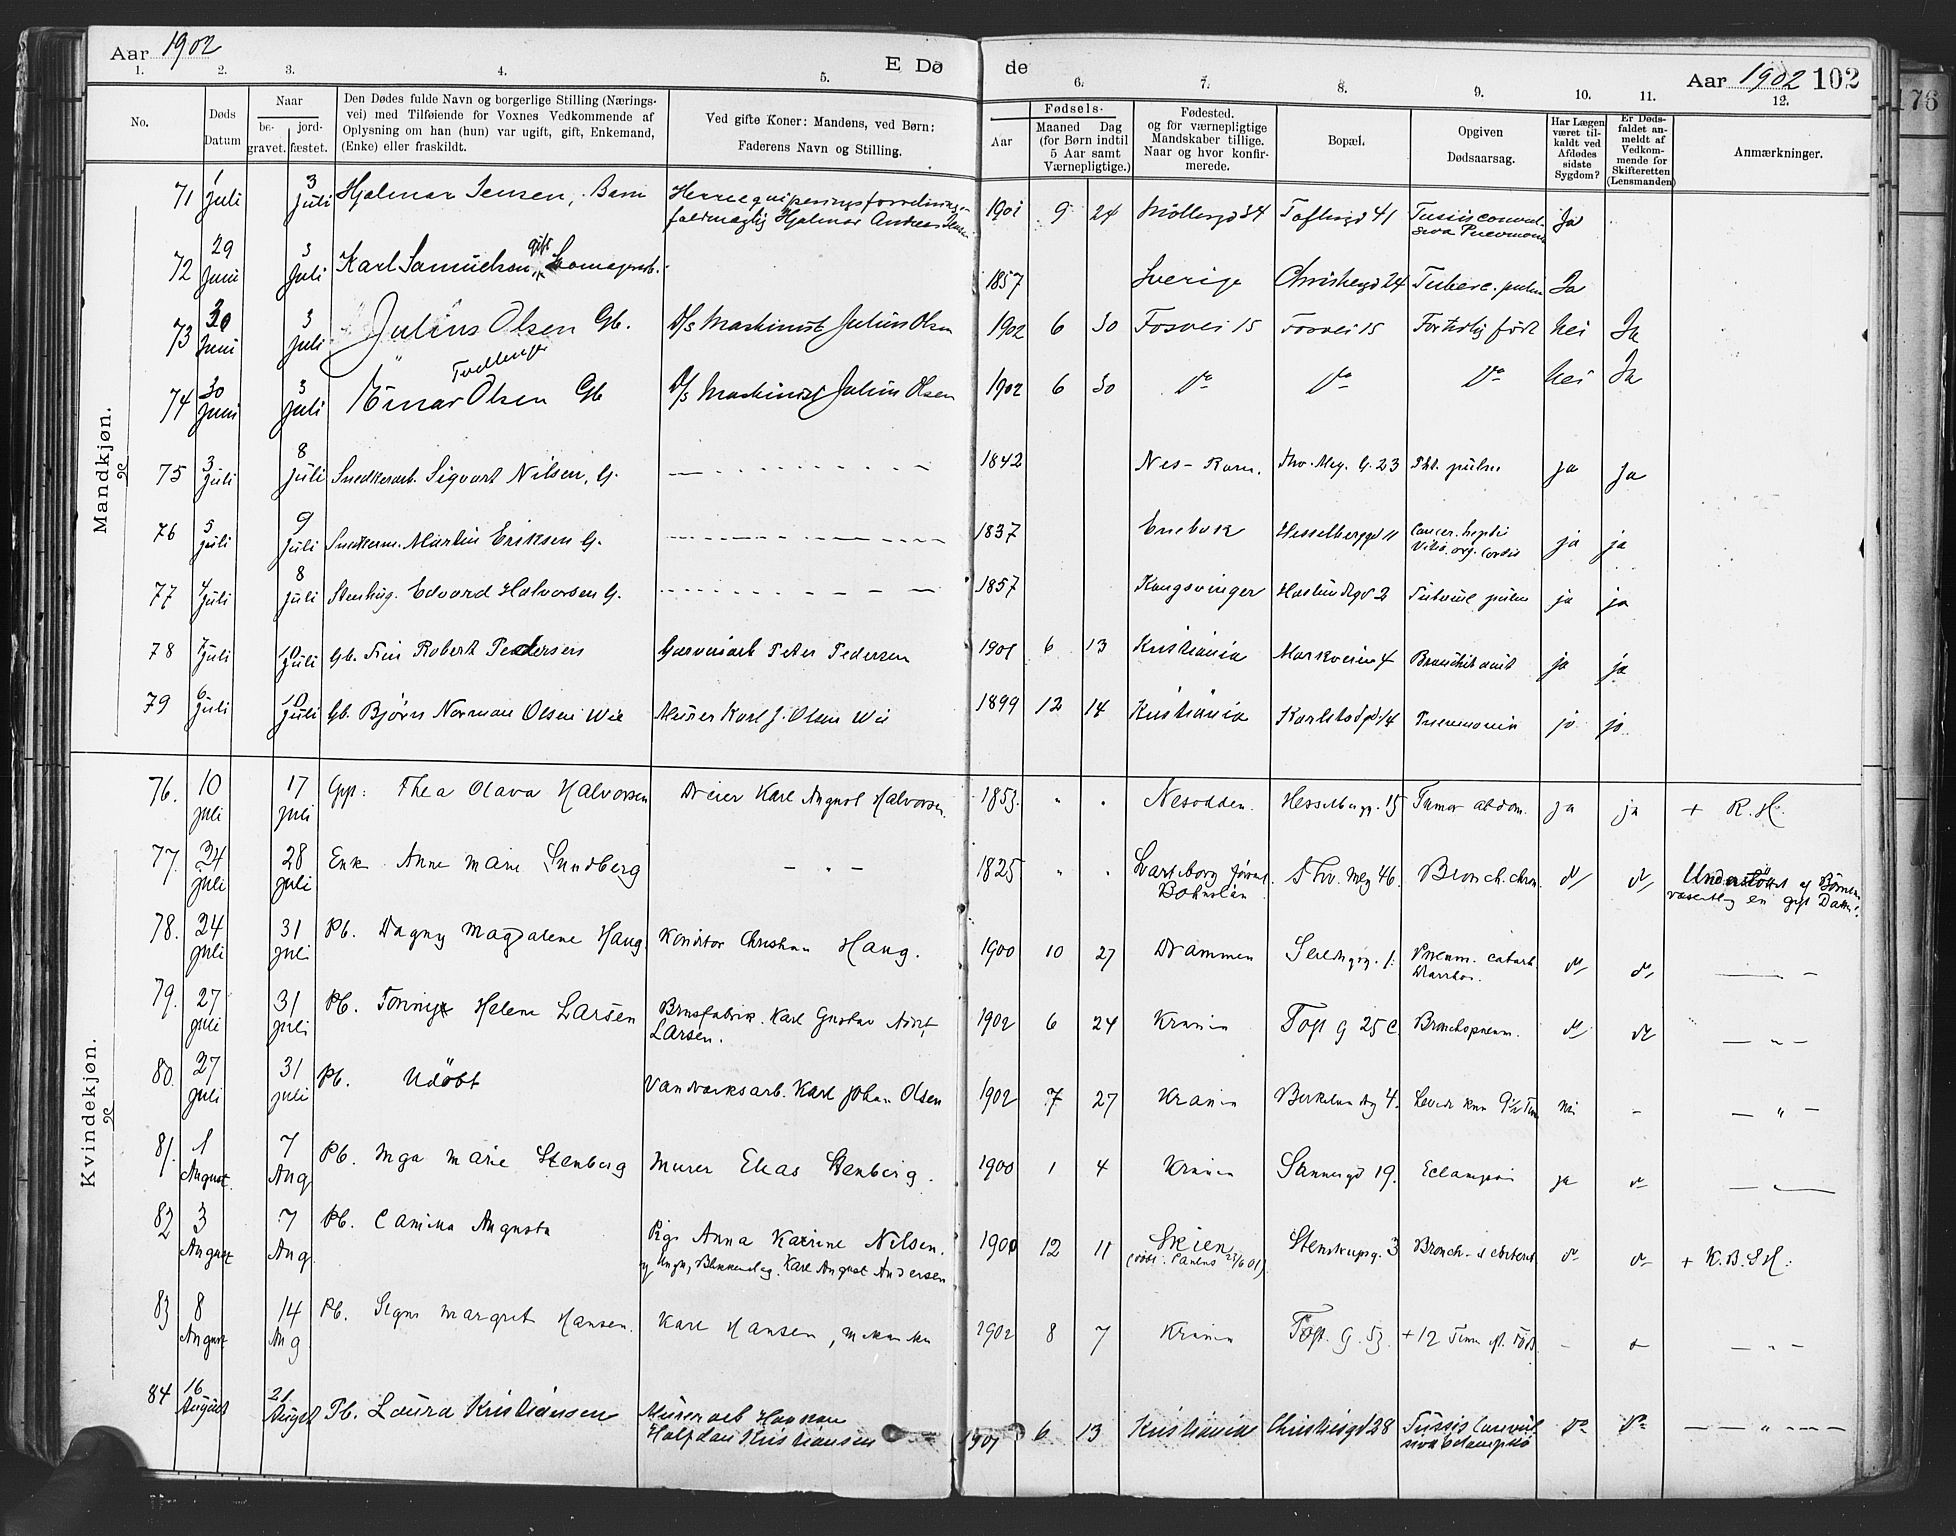 Aar 1902
E Dø
de
Aar 1902 102
1. 2. 3. 4. 5. 6. 7. 8. 9. 10. 11. 12.
No.
Døds Datum
Naar
be- gravet.
jord- fæstet.
Den Dødes fulde Navn og borgerlige Stilling (Nærings-
vei) med Tilføiende for Voxnes Vedkommende af
Oplysning om han (hun) var ugift, gift, Enkemand,
(Enke) eller fraskildt.
Ved gifte Koner: Mandens, ved Børn:
Faderens Navn og Stilling.
Fødsels-
Aar
Maaned Dag
(for Børn indtil
5 Aar samt
Værnepligtige.)
Fødested.
og for værnepligtige
Mandskaber tillige.
Naar og hvor konfir-
merede.
Bopæl.
Opgiven
Dødsaarsag.
Har Lægen
været til-
kaldt ved
Afdødes
sidste
Sygdom?
Er Døds-
faldet an-
meldt af
Vedkom-
mende for
Skifteretten
(Lensmanden)
Anmærkninger.
Mandkjøn.
71 1 Juli 3 Juli Hjalmar Jensen, Barn Herreequiperingsforretnings-
fuldmægtig Hjalmar Andreas Jensen 1901 9 24 Møllergd 34 Toftesgd 41 Tussis convul-
siva Pneumoni Ja
72 29 Juni 3 Juli Karl Samuelsen, gift 1857 Sverige Christiesgd 24 Tuberc. pulm Ja
73 30 Juni 3 Juli Julius Olsen Gb. D/s Maskinist Julius Olsen 1902 6 30 Fosvei 15 Fosvei 15 For tidlig født Nei Ja
Tvillinger
74 30 Juni 3 Juli Einar Olsen Gb D/s Maskinist Julius Olsen 1902 6 30 Do Do Do Nei Ja
75 3 Juli 8 Juli Snedkerarb. Sigvart Nilsen, G. 1842 Nes - Rom. Thv. Mey. G. 23 Tbl. pulm ja Ja
76 5 Juli 9 Juli Snedkerm. Martin Eriksen G. 1837 Enebak Hesselberggd 11 Cancer. hepatis
Vitio. org. cordis ja ja
77 4 Juli 8 Juli Stenhug. Edvard Halvorsen G. 1857 Kongsvinger Haslundsgd 2 Tubercul pulm ja ja
78 7 Juli 10 Juli Gb. Finn Robert Pedersen Garveriarb Peter Pedersen 1901 6 13 Kristiania Markveien 4 Bronchit acut ja ja
79 6 Juli 10 Juli Gb. Bjørn Norman Olsen Wie Murer Karl J. Olsen Wie 1899 12 14 Kristiania Karlstadgd 14 Pneumonia ja ja
Kvindekjøn.
76. 10 juli 17 juli Gift: Thea Olava Halvorsen Dreier Karl August Halvorsen 1853. " " Nesodden. Hesselbergg. 15 Tumor abdom. ja ja + R. H.
77. 24 juli 28 juli Enk Anne Marie Sundberg — " — 1825 " "
Bohuslän Thv. Meyg 46. Bronch. chron. do do Understøttet af Børnene
væsentlig en gift Datter.
78. 24 juli 31 juli Pb. Dagny Magdalene Haug Konditor Christian Haug. 1900 10 27 Drammen Seilduksg. 1. Pneum. catarh.
Diarrhoe. do do — " —
79. 27 juli 31 juli Pb. Tonny Helene Larsen Brusfabrik. Karl Gustav Adolf
Larsen. 1902 6 24 Krania Toft g 25 c Bronchopneum. do do — " —
80. 27 juli 31 juli Pb. Udøbt Vandværksarb. Karl Johan Olsen 1902 7 27 Krania Birkelundsg 4. Levede kun 9 1/2 Time nei - — " —
81. 1 August 7 Aug Pb. Inga Marie Stenberg Murer Elias Stenberg. 1900 1 4 Krania Sannergd 19. Eclampsi ja do — " —
82 3 August 7 Aug. Pb. Camilla Augusta Pige Anna Katrine Nilsen.
og Ungk, Blikkenslag. Karl August Andersen 1900 12 11 Skien
(døbt. Paulus 23/6 01). Stenstrupsg. 3 Bronch. do do + K. B. S. H.
83 8 August 14 Aug Pb. Signe Margret Hansen. Karl Hansen, Mekaniker 1902 8 7 Krania Toft. G. 53. + 12 Timer ef. Føds. - do — " —
84 16 August 21 August Pb. Laura Kristiansen Murerarb Haakon
Halfdan Kristiansen 1901 6 13 Kristiania Christiesgd 28 Tussis Convul-
siva Eclampsia do do — — " — — —